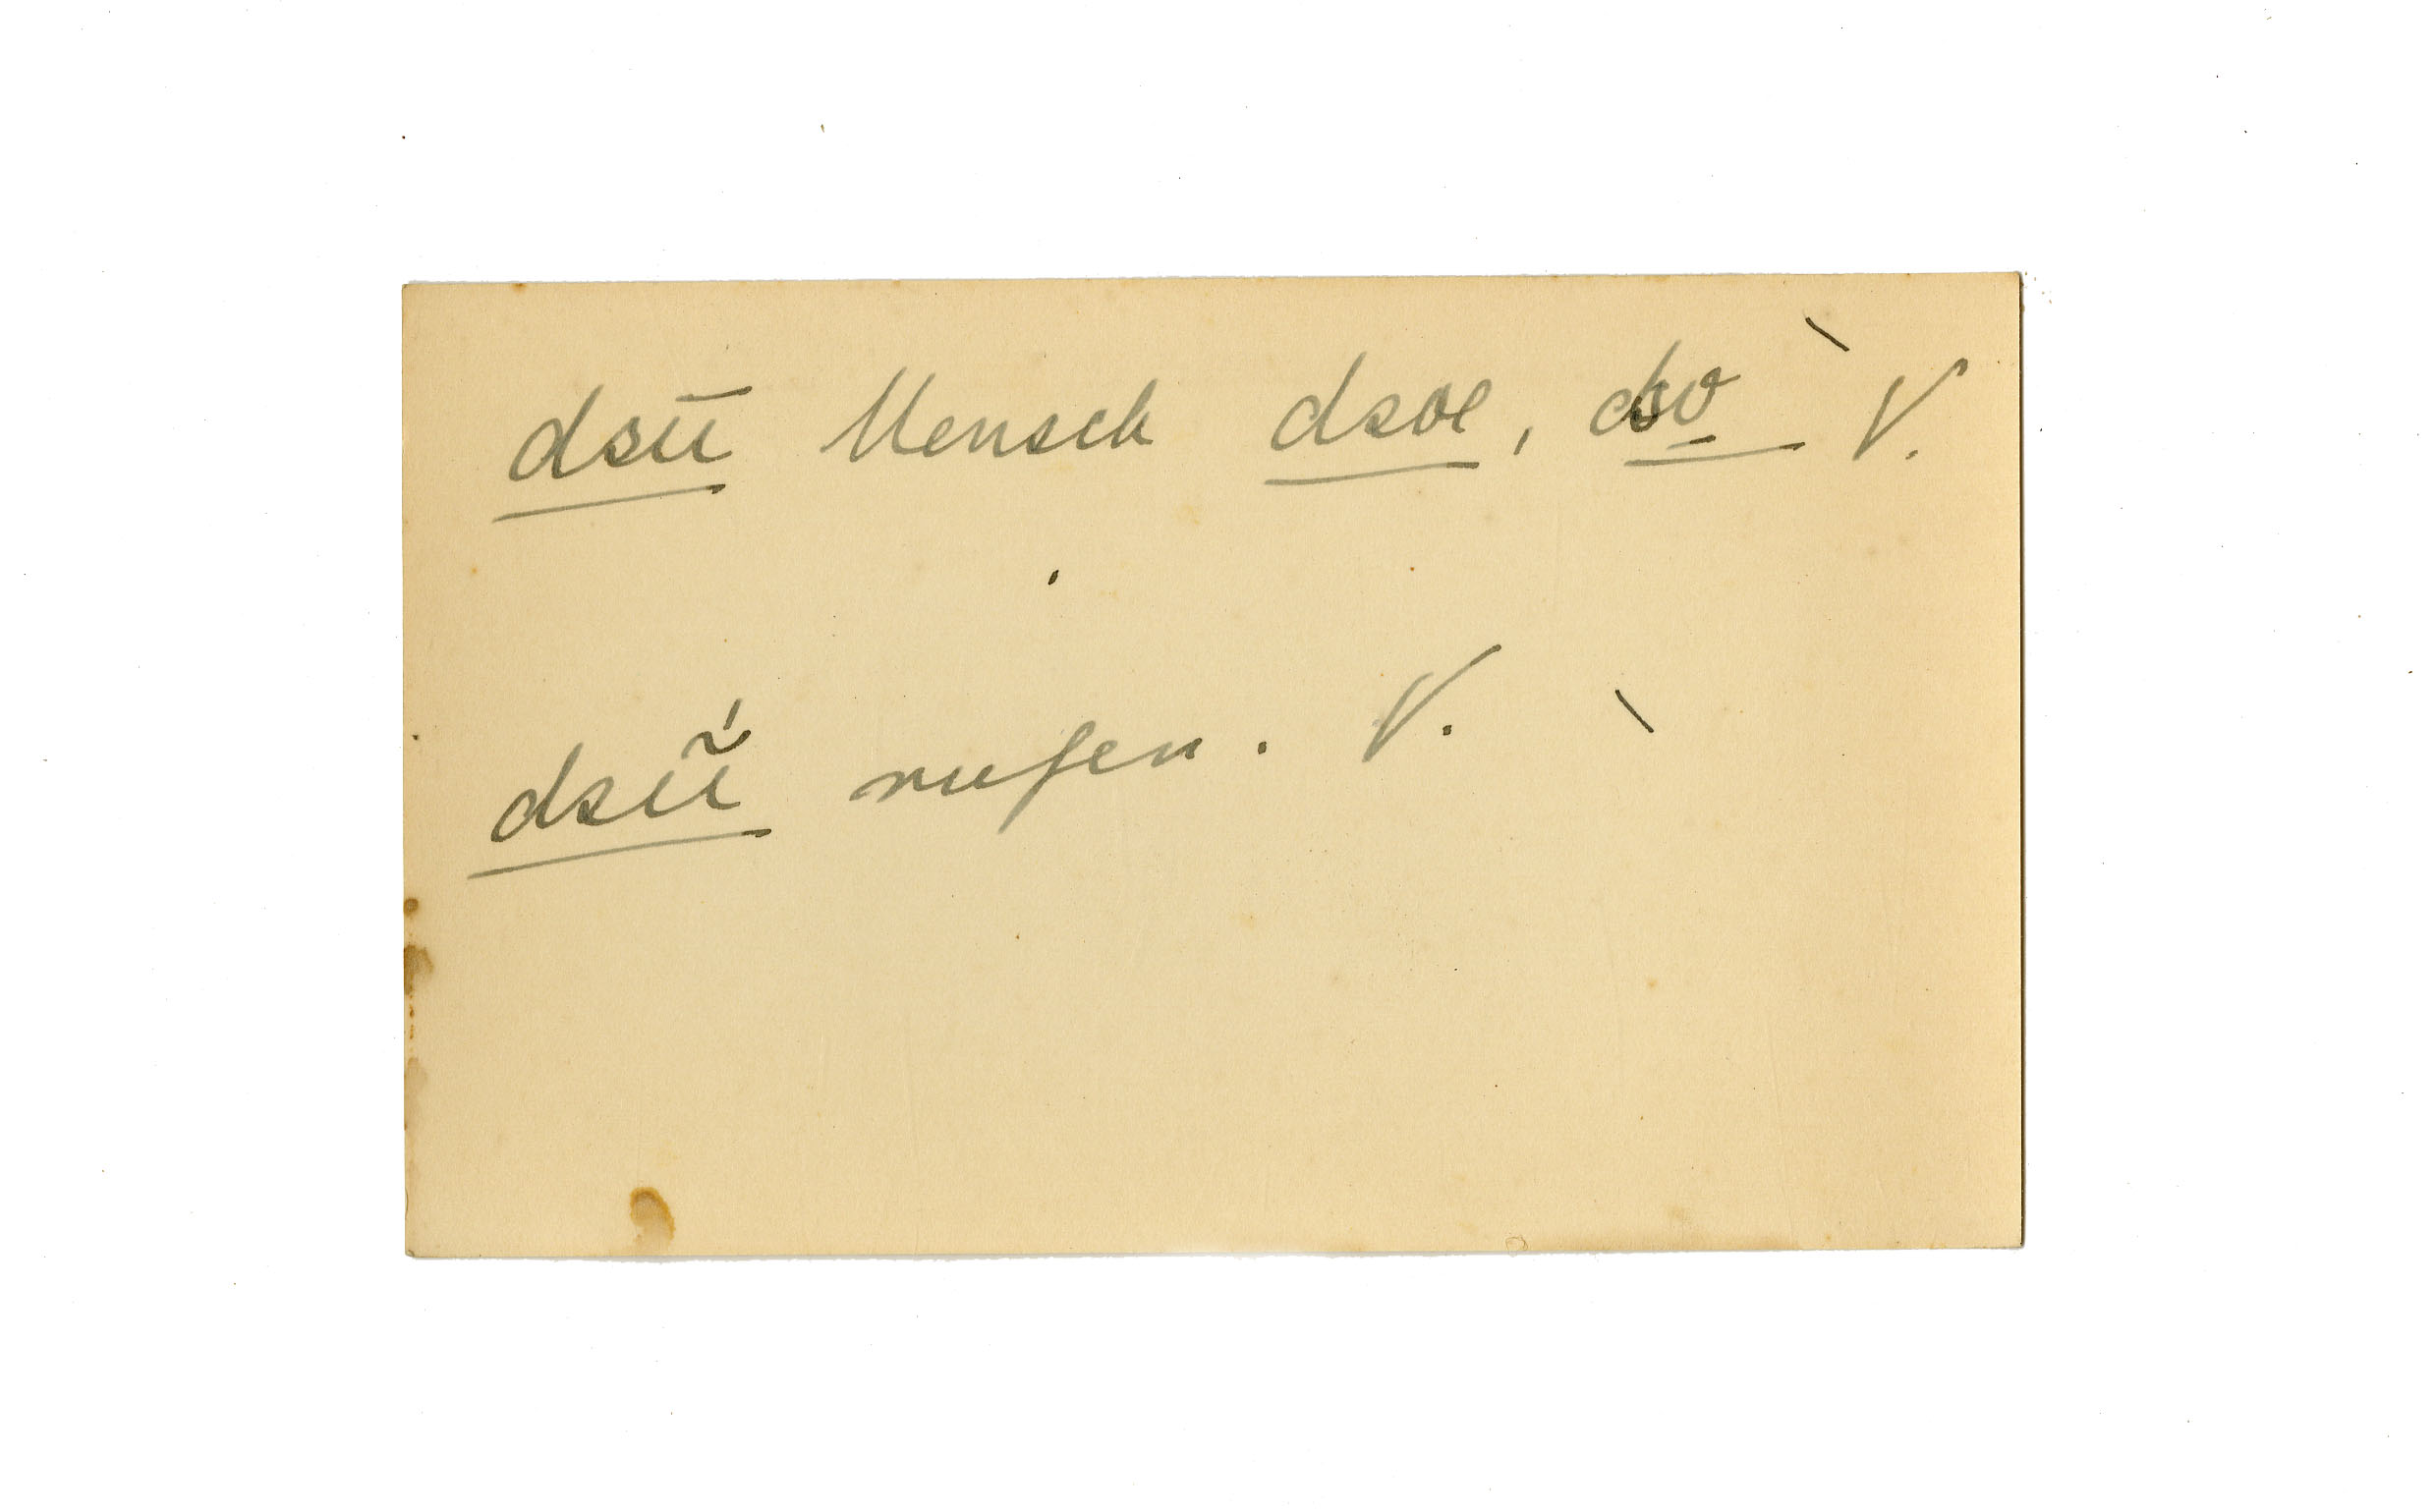 dsū Mensch dsoe, dso̱ V.
dsṹ rufen. V.